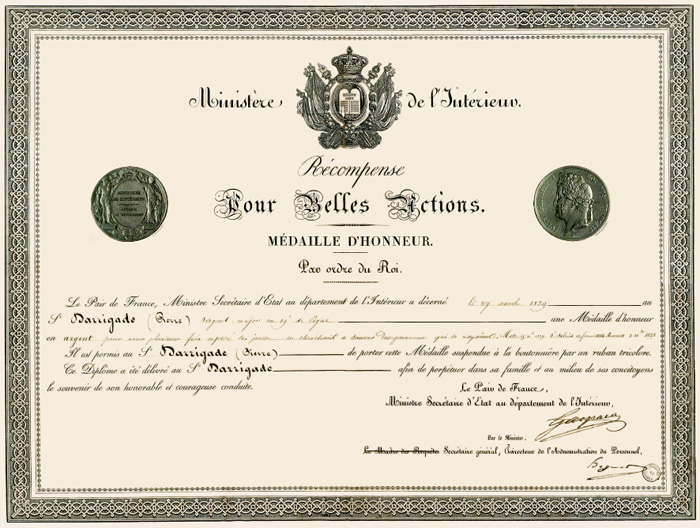 Ministère de l'Intérieur.
Récompense
Pour Belles Actions.
MÉDAILLE D'HONNEUR.
Par ordre du Roi.
Le Pair de France, Ministre Secrétaire d'Etat au département de l'Intérieur a décerné le 27 1839 au
Sr Darrigade (Pierre) sergent major au une Médaille d'honneur
en argent pour avoir plusieurs fois exposé ses jours en cherchant à sauver des personnes qui se noyaient
Il est permis au Sr Darrigade (Pierre) de porter cette Médaille suspendue à la boutonnière par un ruban tricolore.
Ce Diplôme a été délivré au Sr Darrigade afin de perpétuer dans sa famille et au milieu de ses concitoyens
le souvenir de son honorable et courageuse conduite.
Le Pair de France,
Ministre Secrétaire d'Etat au département de l'Intérieur,
Gasparin
Par le Ministre,
Le Maître des Requêtes Secrétaire général, Directeur de l'Administration du Personnel,